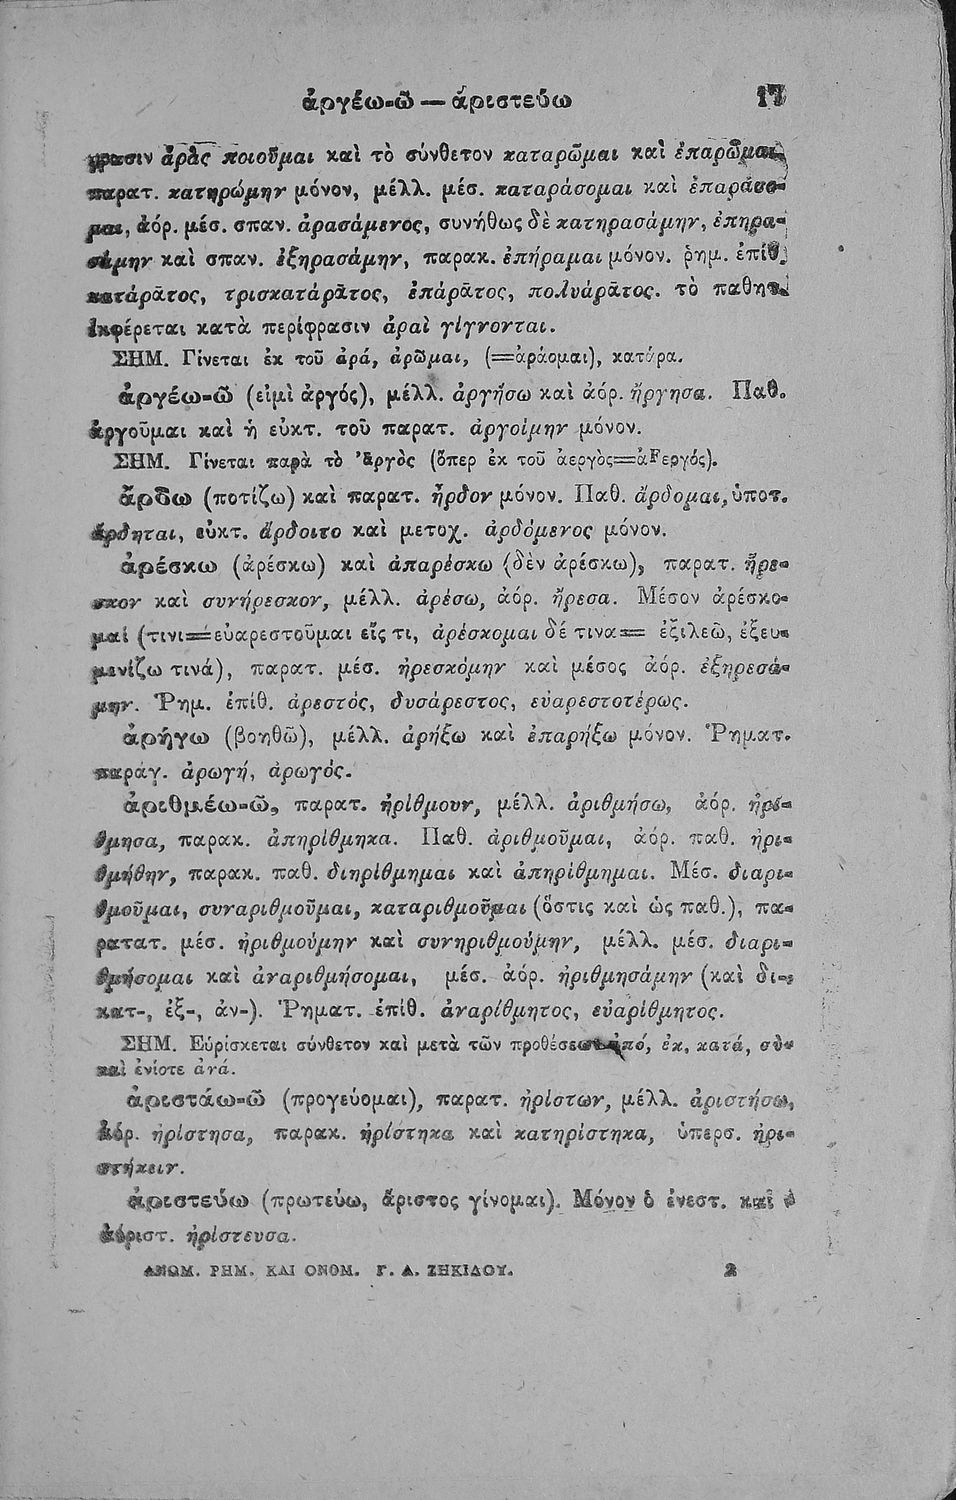 ἀργέω-ῶ — ἀριστεύω 17
φρασιν ἀρὰς ποιοῦμαι καὶ τὸ σύνθετον καταρῶμαι καὶ ἐπαρῶμαι,
παρατ. κατηρώμην μόνον, μέλλ. μέσ. καταράσομαι καὶ ἐπαράσο-
μαι, ἀόρ. μέσ. σπαν. ἀρασάμενος, συνήθως δὲ κατηρασάμην, ἐπηρα-
σάμην καὶ σπαν. ἐξηρασάμην, παρακ. ἐπήραμαι μόνον. ῥημ. ἐπίθ.
κατάρᾱτος, τρισκατάρᾱτος, ἐπάρᾱτος, πολυάρᾱτος. τὸ παθητ.
ἐκφέρεται κατὰ περίφρασιν ἀραὶ γίγνονται.
ΣΗΜ. Γίνεται ἐκ τοῦ ἀρά, ἀρῶμαι, (=ἀράομαι), κατάρα.
ἀργέω-ῶ (εἰμὶ ἀργός), μέλλ. ἀργήσω καὶ ἀόρ. ἤργησα. Παθ.
ἀργοῦμαι καὶ ἡ εὐκτ. τοῦ παρατ. ἀργοίμην μόνον.
ΣΗΜ. Γίνεται παρὰ τὸ ἀργὸς (ὅπερ ἐκ τοῦ ἀεργὸς=ἀFεργός).
ἄρδω (ποτίζω) καὶ παρατ. ἦρδον μόνον. Παθ. ἄρδομαι, ὑποτ.
ἄρδηται, εὐκτ. ἄρδοιτο καὶ μετοχ. ἀρδόμενος μόνον.
ἀρέσκω (ἀρέσκω) καὶ ἀπαρέσκω (δὲν ἀρέσκω), παρατ. ἤρε-
σκον καὶ συνήρεσκον, μέλλ. ἀρέσω, ἀόρ. ἤρεσα. Μέσον ἀρέσκο-
μαί (τινι=εὐαρεστοῦμαι εἴς τι, ἀρέσκομαι δέ τινα= ἐξιλεῶ, ἐξευ-
μενίζω τινά), παρατ. μέσ. ἠρεσκόμην καὶ μέσος ἀόρ. ἐξηρεσά-
μην. Ῥημ. ἐπίθ. ἀρεστός, δυσάρεστος, εὐαρεστοτέρως.
ἀρήγω (βοηθῶ), μέλλ. ἀρήξω καὶ ἐπαρήξω μόνον. Ῥηματ.
παράγ. ἀρωγή, ἀρωγός.
ἀριθμέω-ῶ, παρατ. ἠρίθμουν, μέλλ. ἀριθμήσω, ἀόρ. ἠρί-
θμησα, παρακ. ἀπηρίθμηκα. Παθ. ἀριθμοῦμαι, ἀόρ. παθ. ἠρι-
θμήθην, παρακ. παθ. διηρίθμημαι καὶ ἀπηρίθμημαι. Μέσ. διαρι-
θμοῦμαι, συναριθμοῦμαι, καταριθμοῦμαι (ὅστις καὶ ὡς παθ.), πα-
ρατατ. μέσ. ἠριθμούμην καὶ συνηριθμούμην, μέλλ. μέσ. διαρι-
θμήσομαι καὶ ἀναριθμήσομαι, μέσ. ἀόρ. ἠριθμησάμην (καὶ δι-,
κατ-, ἐξ-, ἀν-). Ῥηματ. ἐπίθ. ἀναρίθμητος, εὐαρίθμητος.
ΣΗΜ. Εὑρίσκεται σύνθετον καὶ μετὰ τῶν προθέσεων ἀπό, ἐκ, κατά, σὺν
καὶ ἐνίοτε ἀνά.
ἀριστάω-ῶ (προγεύομαι), παρατ. ἠρίστων, μέλλ. ἀριστήσω,
ἀόρ. ἠρίστησα, παρακ. ἠρίστηκα καὶ κατηρίστηκα, ὑπερσ. ἠρι-
στήκειν.
ἀριστεύω (πρωτεύω, ἄριστος γίνομαι). Μόνον ὁ ἐνεστ. καὶ ὁ
ἀόριστ. ἠρίστευσα.
ΑΝΩΜ. ΡΗΜ. ΚΑΙ ΟΝΟΜ. Γ. Δ. ΖΗΚΙΔΟΥ. 2